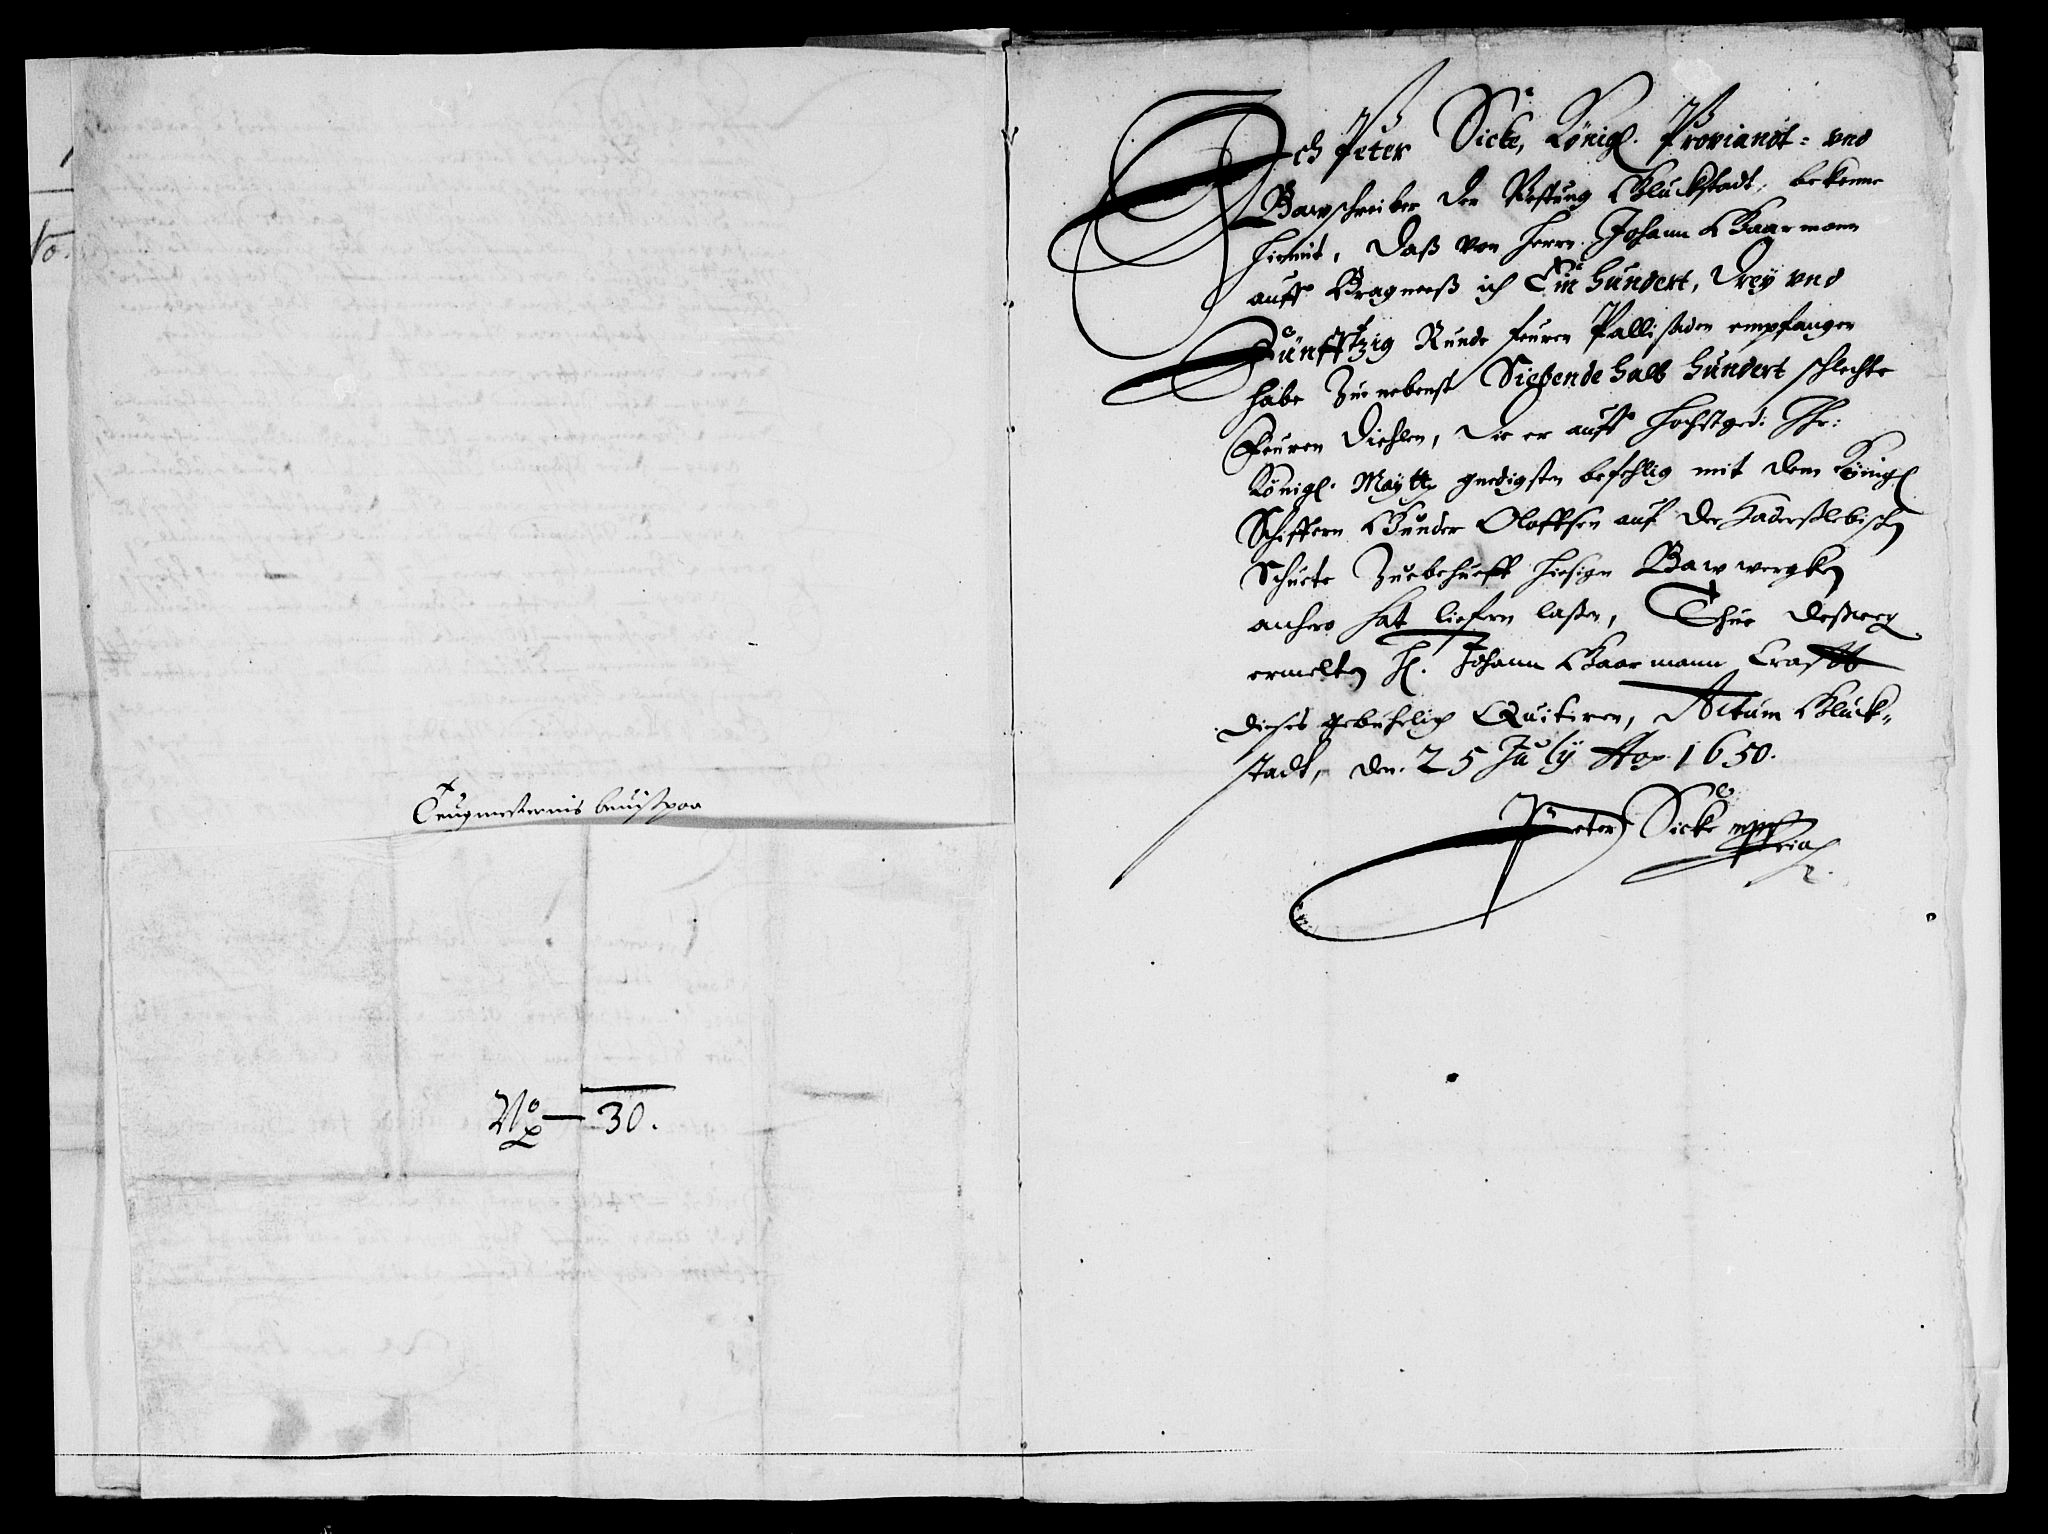 No.
Teugmesternis beuiszpaa
No — 30.
Ich Peter Sicke, Königl. Proviandt- vnd
Bawschreiber der Vestung Glückstadt, bekenne
hiemit, daß von Herrn Johann Gaarmann
auff Bragneeß ich Ein Hundert, Drey vnd
Fünfftzig Runde feuren Pallisaden empfangen
habe zue nebenst Siebendehalb Hundert schlechte
feuren Diehlen, die er auff hochstged: Ihr:
Königl. Maytt gnedigsten befehlig mit dem Königl
Schiffern Gunder Oloffsen auf der Haderßlebischen
Schute zuebehueff hiesigen Bawwergken
anhero hat liefern laßen, Thue deßweg
ermelten H. Johann Gaarmann Crafft
dieses gebührlich Quitiren, Actum Glück-
stadt, den 25 July Ao. 1650.
Peter Sicke mpp